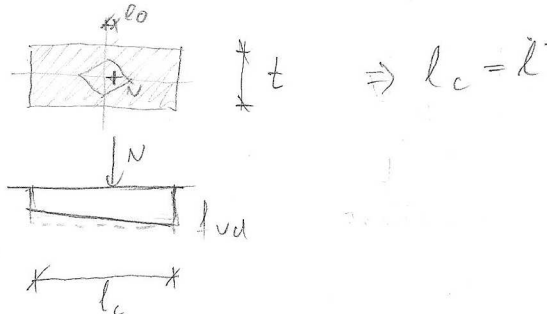 e0
t ⇒ l_c = l
N
N
f_vd
l_c